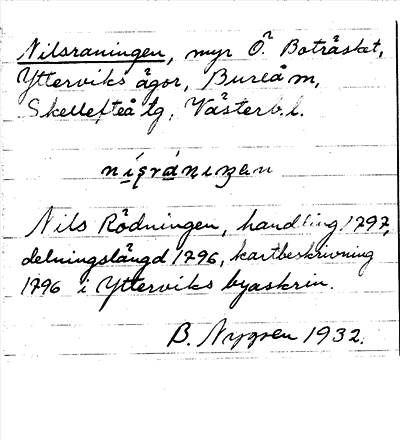 Nilsraningen, myr Ö. Boträsket,
Ytterviks ägor, Bureå sn,
Skellefteå tg, Västerb.l.
Nils Rödningen, handling 1797,
delningslängd 1796, kartbeskrivning
1796 i Ytterviks byaskrin.
B. Nygren 1932.